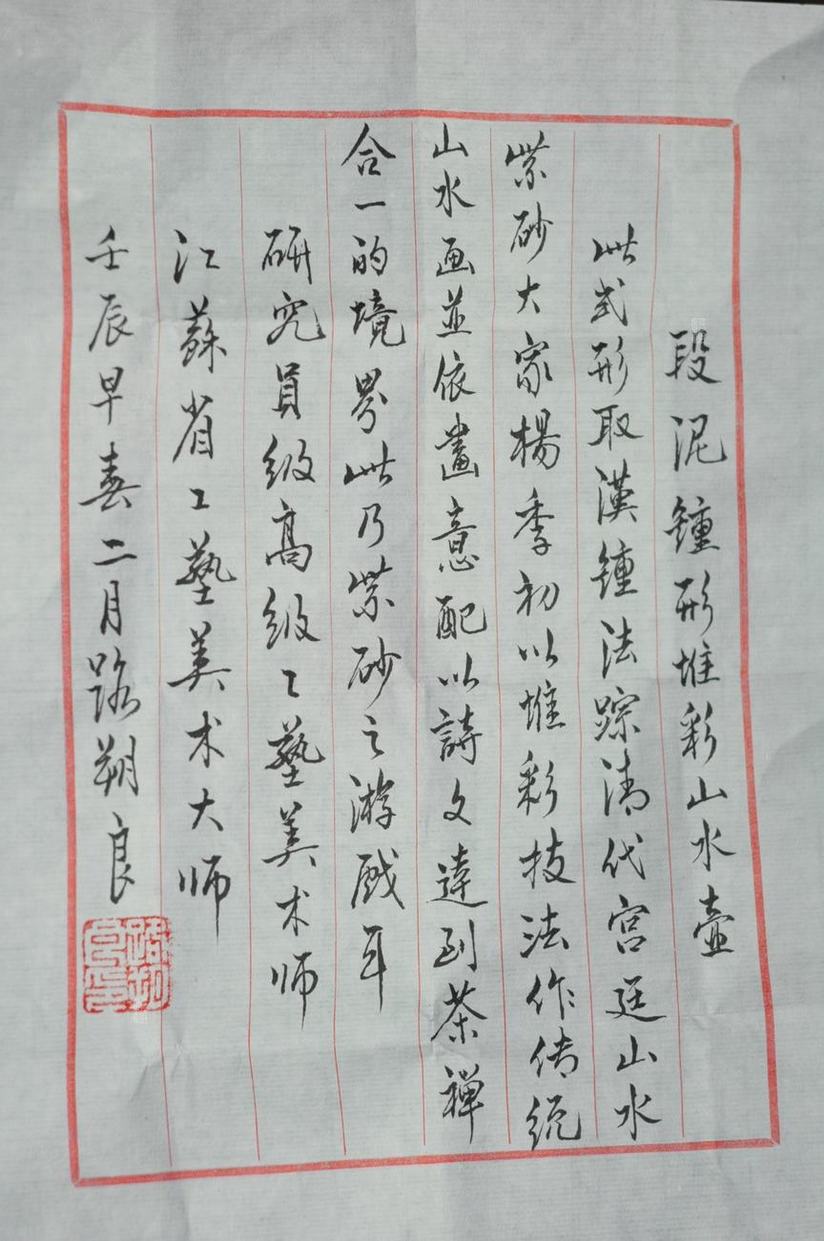 段泥鍾形堆彩山水壷
此式形取漢鍾法踪清代宫廷山水
紫砂大家楊季初以堆彩技法作传统
山水画並依畫意配以詩文達到茶禅
合一的境界此乃紫砂之游戲耳
研究員级高级工藝美术师
江蘇省工藝美术大师
壬辰早春二月路朔良